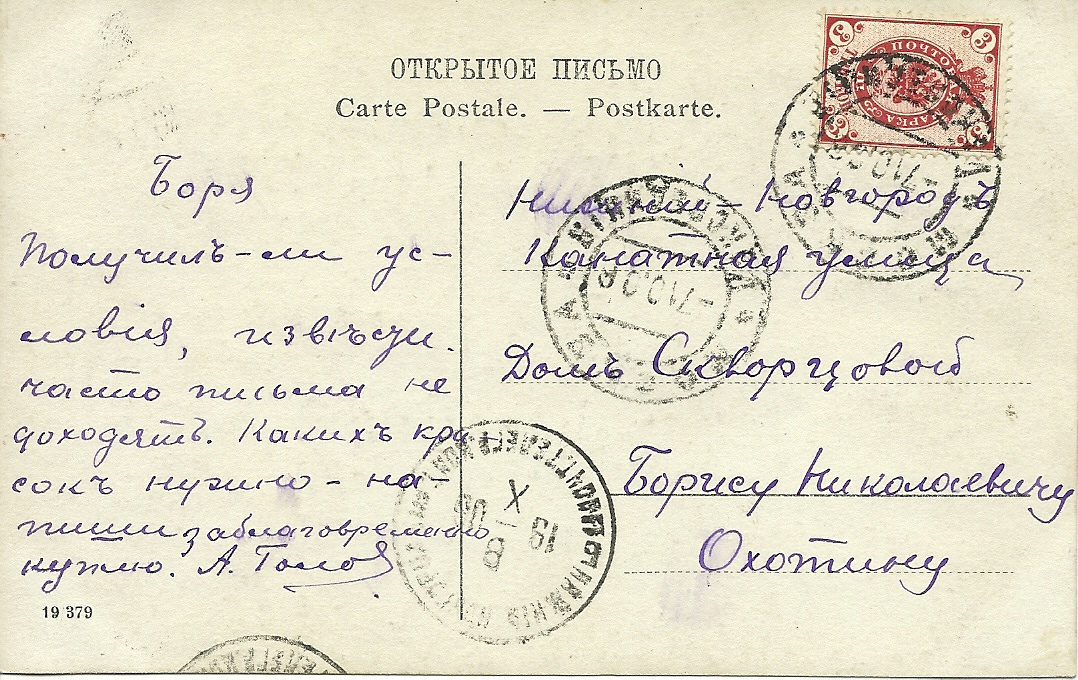 ОТКРЫТОЕ ПИСЬМО
Carte Postale. — Postkarte.
3 3
3 3
Боря
Получилъ-ли ус-
ловия, извѣсти.
часто письма не
доходятъ. Какихъ кра
сокъ нужно - на-
пиши заблаговременно
куплю. А.
19 379
Нижний-Новгородъ
Канатная улица
Домъ Скворцовой
Борису Николаевичу
Охотину